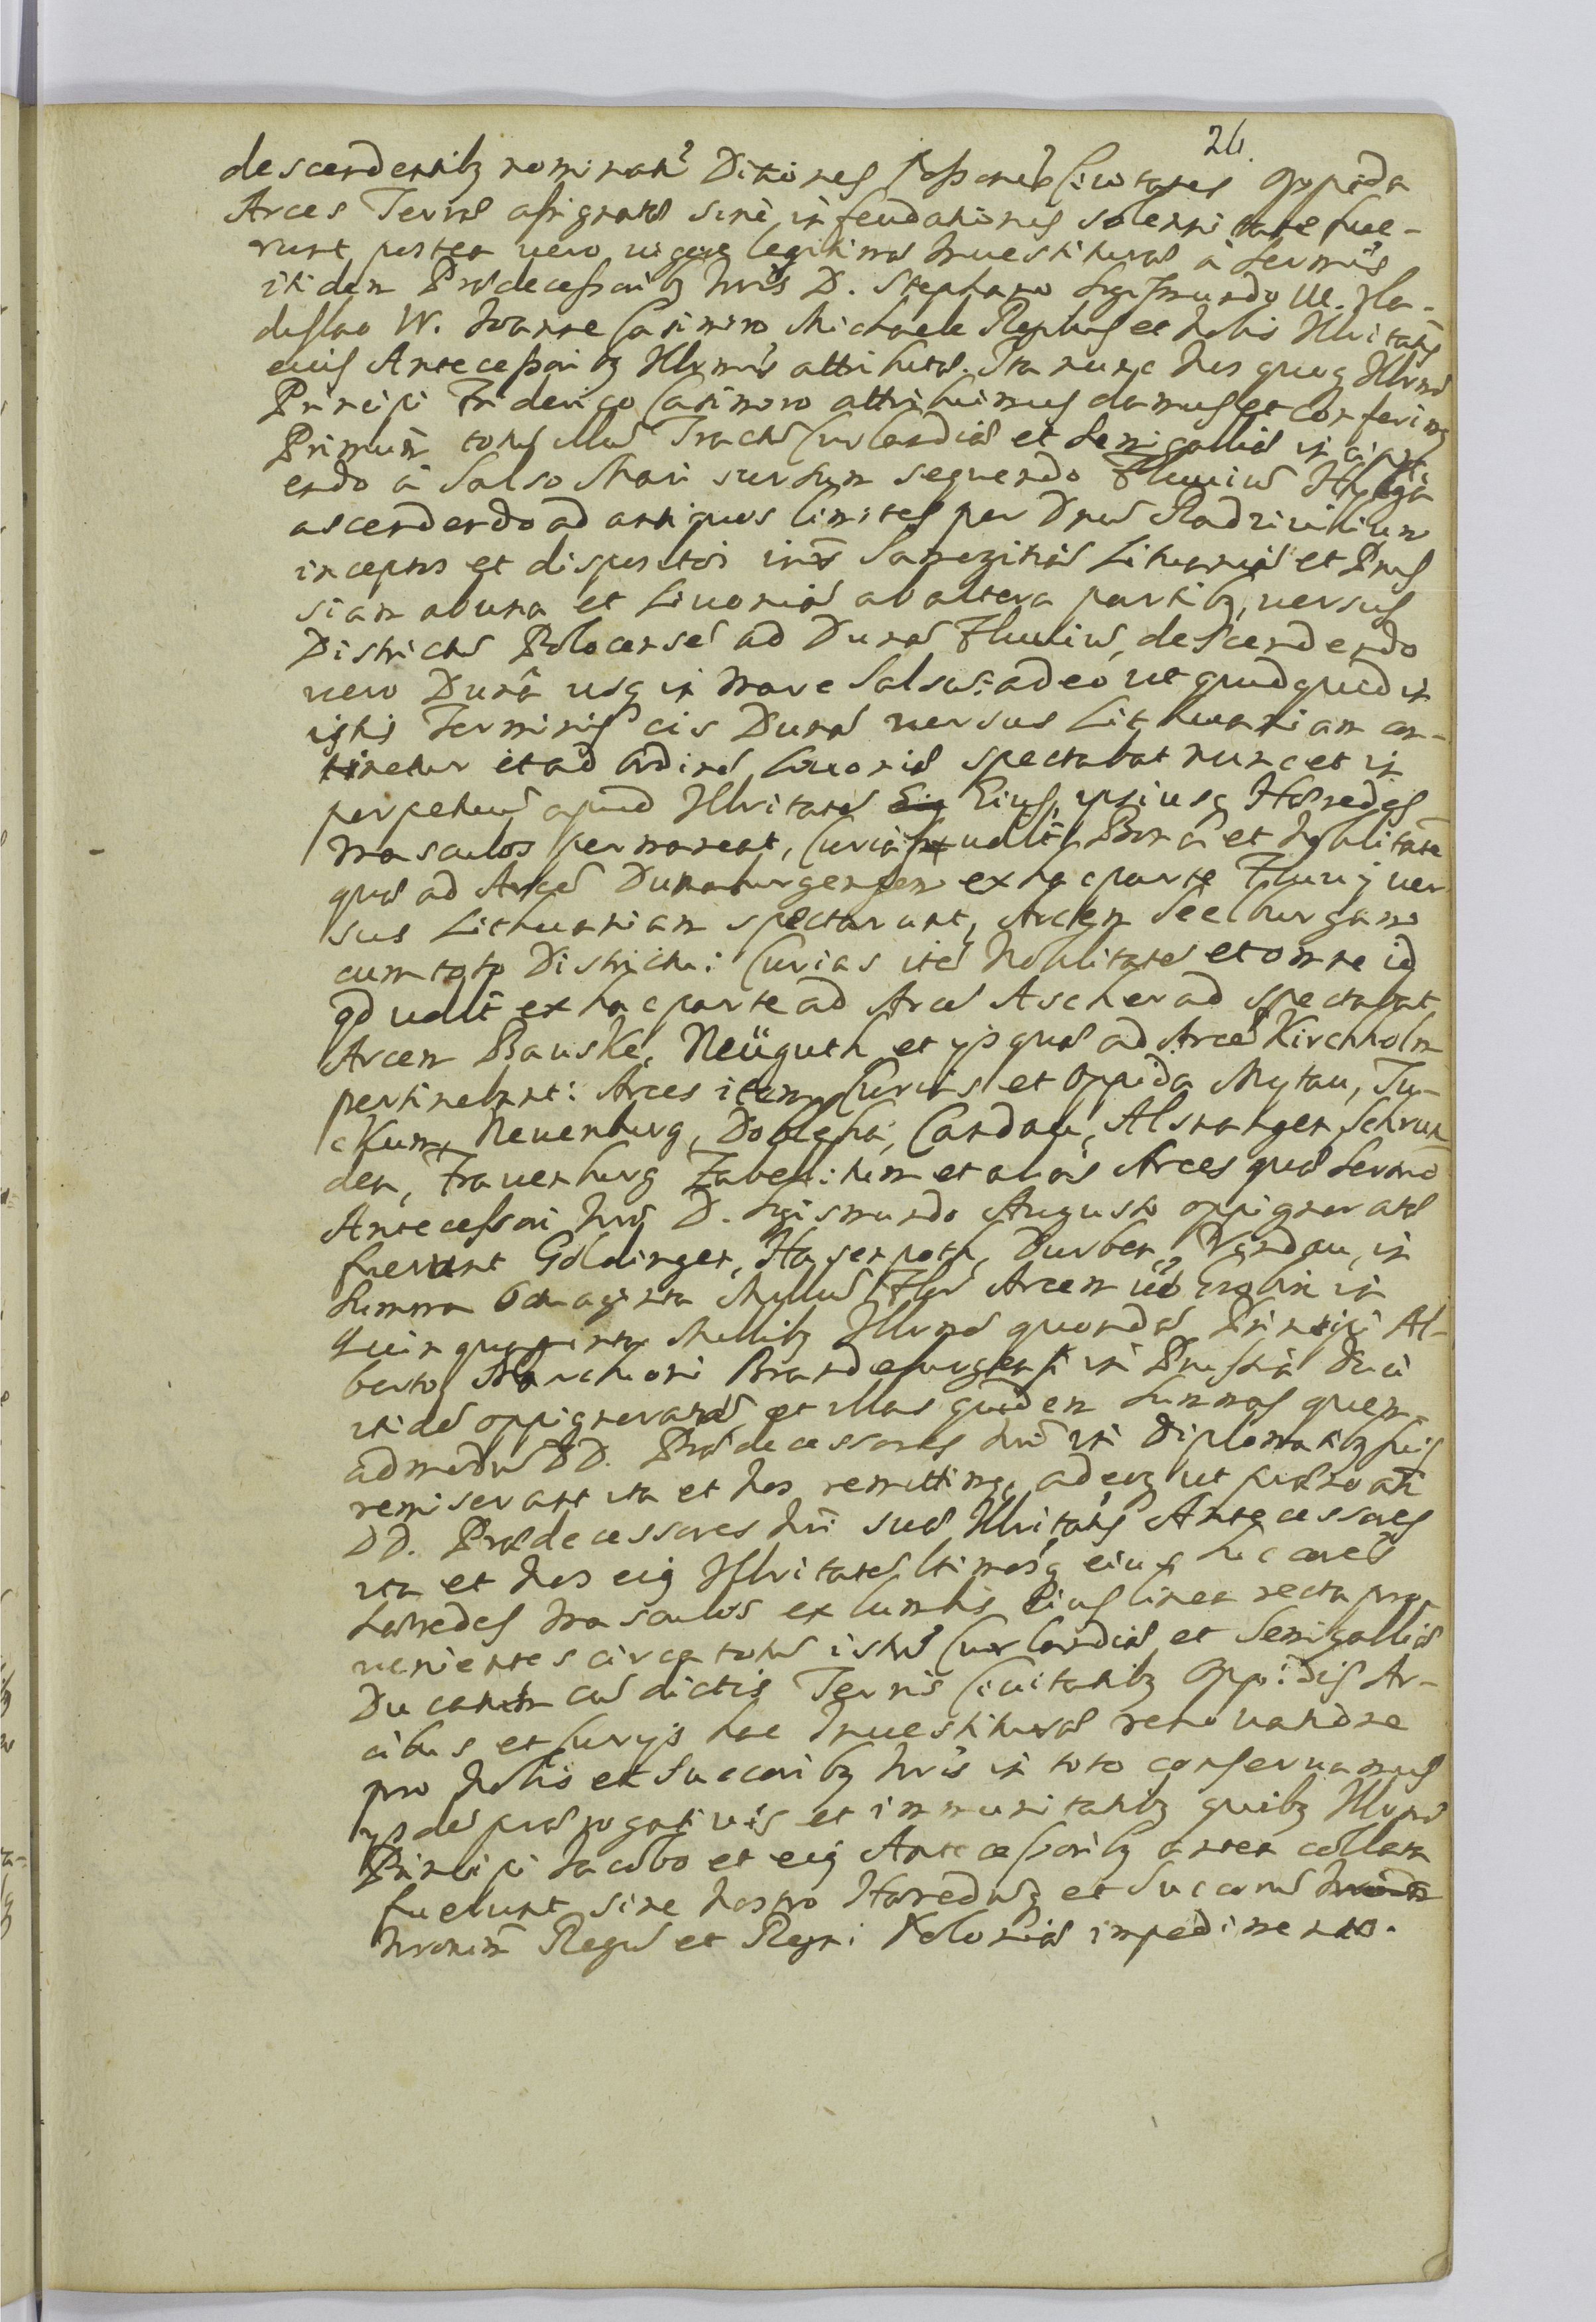 26.
descendentibz nominat? Ditiones Possoneś Ciuitates Oppida
Arces Terras assignatas sine infeudationis solennitate fue-
runt, postea uero uigore legitimas Inuestituras à Sermis
itidem Prædecessoribz Nris D. Stephano Sigismundo III. Vla-
dislao IV. Ioanne Casimiro Michaele Regibus et Nobis Illritatis
eius Antecessoribz Illrmis attributas. Ita nunc Nos quoq Illrmo
Principi Friderico Casimiro attribuimus damus et conferimus
Primum totum illum Tractum Curlandiæ et Semigalliæ incipi-
endo à Salso Mari sursum sequendo Fluuium Hylgia
ascendendo ad antiquos limites per Dnum Radziuilium
inceptos et dispositos inter Samogitiam Lituaniam et Prus
siam ab una et Liuoniam ab altera partibz, uersus
Districtum Polocensem ad Dunam Fluuium, descendendo
uero Dunâ usq in mare Salsum: adeò ut quidquid in
istis Terminis cis Dunam uersus Lithuaniam con-
tinetur et ad Ordinem Liuoniæ spectabat nunc et in
perpetuum apud Illritatem Eius, ipsiusq Hæredes
masculos permaneat, Curiâ uidelicet Bor â et Nobilitate
quæ ad Arcem Dunaburgensem ex hac parte Fluuij uer
sus Lithuaniam spectarunt, Arcem Seelburgam
cum toto Districtu: Curias item Nobilitatem et omne id
qd uidelicet ex hac parte ad Arcem Ascherad spectabat
Arcem Bauske, Neüguth et ijs quæ ad Arcem Kirchholm
pertinebant: Arces item Curias et Oppida Mytau, Tu-
ckum, Neuenburg, Doblehn, Candau, Alsnangen Schrun
den, Frauenburg Zabeln: tum et alias Arces quæ Sermo
Antecessori Nro D. Sigismundo Augusto oppigneratæ
fuerunt Goldingen, Hasenpoth, Durben, Windau, in
Summa Octoaginta Millium Flor Arcem uero Grobin in
Quinquaginta Millibz Illrmo quondam Principi Al-
berto Marchioni Brandeburgensi in Prussia Duci
itidem oppigneratam, et illas quidem Summas quem-
admodum DD. Prædecessores Nri in Diplomatibz suis
remiserant ita et Nos remittimus, adeoq ut prænoati
DD. Prædecessores Nri suæ Illritatis Antecessores
ita et Nos eius Illritatem ltimosq eius Succores
hæredes masculos ex lumbis Eius linea recta pro-
uenientes circa totum istum Curlandiæ et Semigalliæ
Ducatum cum dictis Terris Ciuitatibz Oppidis Ar-
cibus et Curijs hac Inuestituræ renouatione
pro Nobis et Succoribz Nris in toto conseruamus
ijsdem prærogatiuis et immunitatibz quibz Illrmo
Principi Iacobo et eius Antecessoribz antea collata
fuerunt, sine nostro Hæredumq et Succorum
Nrorum Regum et Regni Poloniæ impedimento.